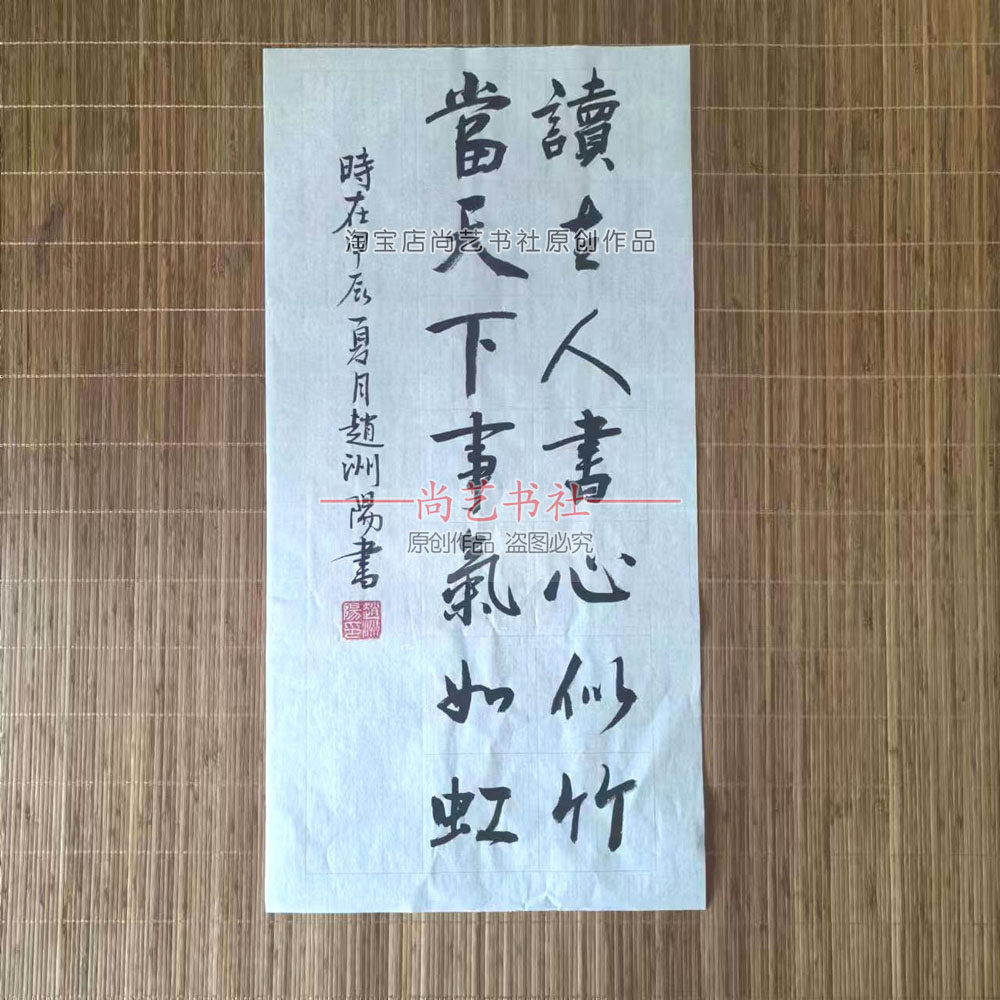 讀古人書心似竹
當天下事氣如虹
時在甲辰夏月趙洲陽書
趙洲陽印
淘宝店尚艺书社原创作品
尚艺书社
原创作品 盗图必究